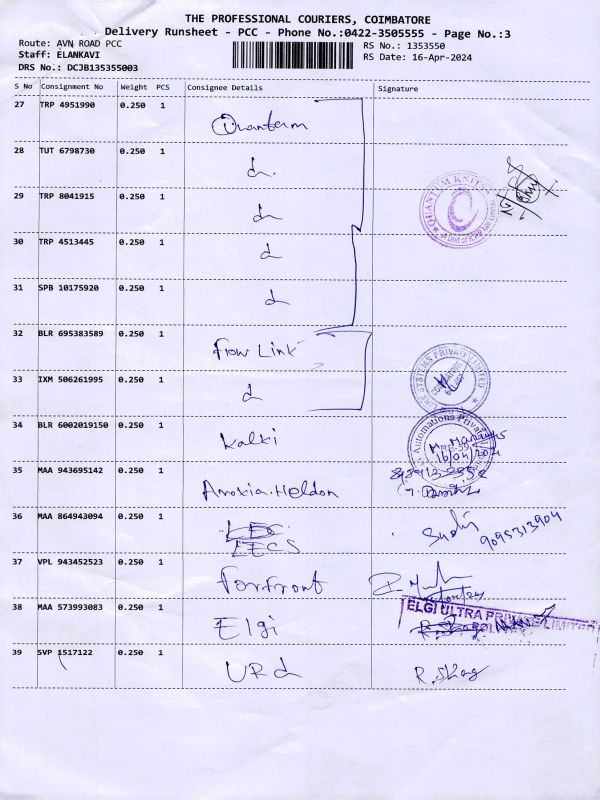 THE PROFESSIONAL COURIERS, COIMBATORE
Delivery Runsheet - PCC - Phone No.:0422-3505555 - Page No.:3
Route: AVN ROAD PCC RS No.: 1353550
Staff: ELANKAVI RS Date: 16-Apr-2024
DRS No.: DCJB135355003
S No Consignment No Weight PCS Consignee Details Signature
27 TRP 4951990 0.250 1
28 TUT 6798730 0.250 1
29 TRP 8041915 0.250 1
QUANTUM KNITS
30 TRP 4513445 0.250 1
31 SPB 10175920 0.250 1
32 BLR 695383589 0.250 1 Flow Link
SYSTEMS PRIVATE LIMITED
33 IXM 506261995 0.250 1
34 BLR 6002019150 0.250 1 Kalki
Automations Private
16/04/2024
35 MAA 943695142 0.250 1
36 MAA 864943094 0.250 1 LECS 9095313904
37 VPL 943452523 0.250 1 Forfront
38 MAA 573993083 0.250 1 Elgi
ELGI ULTRA PRIVATE LIMITED
39 SVP 1517122 0.250 1 URd